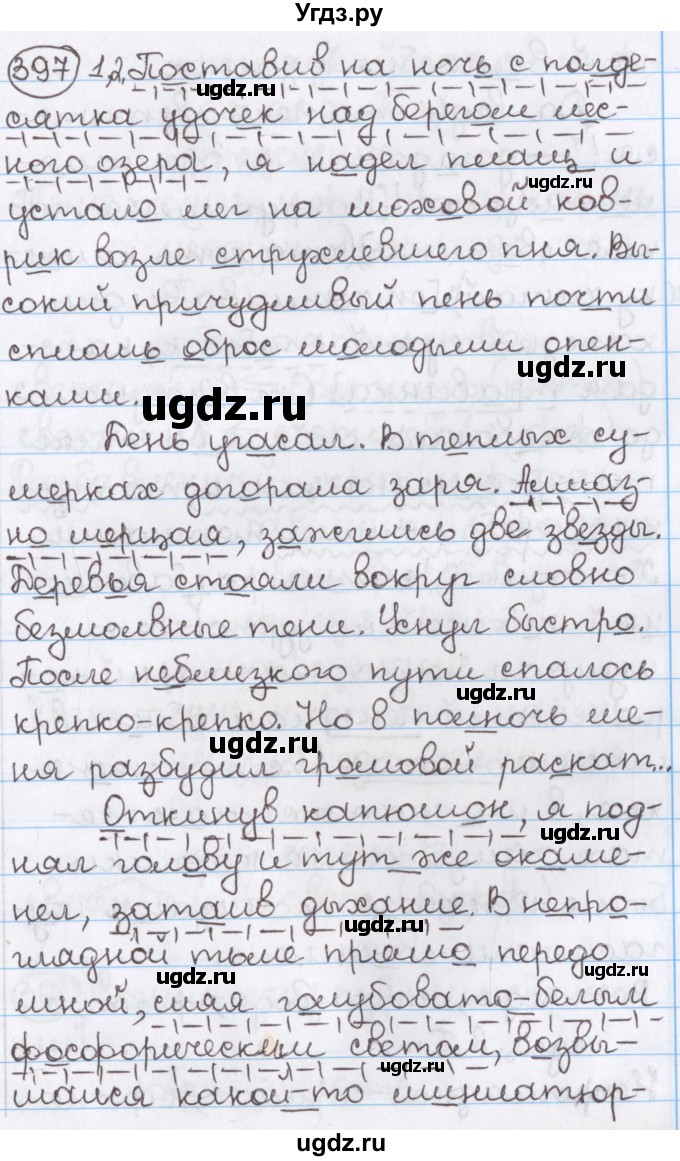 Угдз.ру
397 1,2. Поставив на ночь с полде-
ugdz.ru
сятка удочек над берегом лес-
ного озера, я надел плащ и
ugdz.ru
устало лёг на моховой ков-
рик возле струхлевшего пня. Вы-
сокий причудливый пень почти
сплошь оброс молодыми опен-
ugdz.ru
ками.
ugdz.ru
День угасал. В теплых су-
мерках догорала заря. Алмаз-
но мерцая, зажглись две звезды.
Деревья стояли вокруг словно
безмолвные тени. Уснул быстро.
После неблизкого пути спалось
ugdz.ru
крепко-крепко. Но в полночь ме-
ugdz.ru
ня разбудил громовой раскат...
Откинув капюшон, я под-
ugdz.ru
нял голову и тут же окаме-
нел, затаив дыхание. В непро-
ugdz.ru
глядной тьме прямо передо
ugdz.ru
ugdz.ru
мной, сияя голубовато-белым
фосфорическим светом, возвы-
ugdz.ru
шался какой-то миниатюр-
ugdz.ru